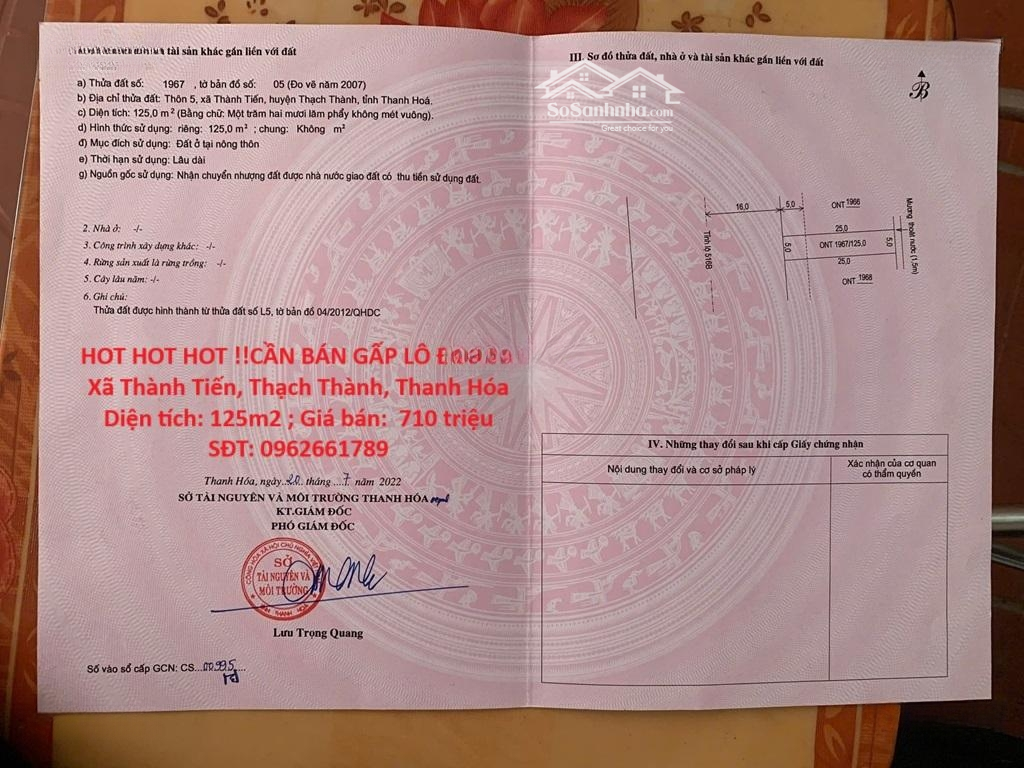 tài sản khác gắn liền với đất
a) Thửa đất số: 1967 , tờ bản đồ số: 05 (Đo vẽ năm 2007)
b) Địa chỉ thửa đất: Thôn 5, xã Thành Tiến, huyện Thạch Thành, tỉnh Thanh Hoá.
c) Diện tích: 125,0 m² (Bằng chữ: Một trăm hai mươi lăm phẩy không mét vuông).
d) Hình thức sử dụng: riêng: 125,0 m² ; chung: Không m²
đ) Mục đích sử dụng: Đất ở tại nông thôn
e) Thời hạn sử dụng: Lâu dài
g) Nguồn gốc sử dụng: Nhận chuyển nhượng đất được nhà nước giao đất có thu tiền sử dụng đất.
2. Nhà ở: -/-
3. Công trình xây dựng khác: -/-
4. Rừng sản xuất là rừng trồng: -/-
5. Cây lâu năm: -/-
6. Ghi chú:
Thửa đất được hình thành từ thửa đất số L5, tờ bản đồ 04/2012/QHDC
HOT HOT HOT !!CẦN BÁN GẤP LÔ
Xã Thành Tiến, Thạch Thành, Thanh Hóa
Diện tích: 125m2 ; Giá bán: 710 triệu
SĐT: 0962661789
Thanh Hóa, ngày 20 tháng 7 năm 2022
SỞ TÀI NGUYÊN VÀ MÔI TRƯỜNG THANH HÓA
KT.GIÁM ĐỐC
PHÓ GIÁM ĐỐC
SỞ
TÀI NGUYÊN VÀ
MÔI TRƯỜNG
Lưu Trọng Quang
Số vào sổ cấp GCN: CS...00995...
III. Sơ đồ thửa đất, nhà ở và tài sản khác gắn liền với đất
SoSanhnha.com
Great choice for you
B
16,0
5,0
ONT 1966
25,0
Tỉnh lộ 516B
5,0
ONT 1967/125,0
5,0
Mương thoát nước (1,5m)
25,0
ONT 1968
IV. Những thay đổi sau khi cấp Giấy chứng nhận
Nội dung thay đổi và cơ sở pháp lý
Xác nhận của cơ quan
có thẩm quyền